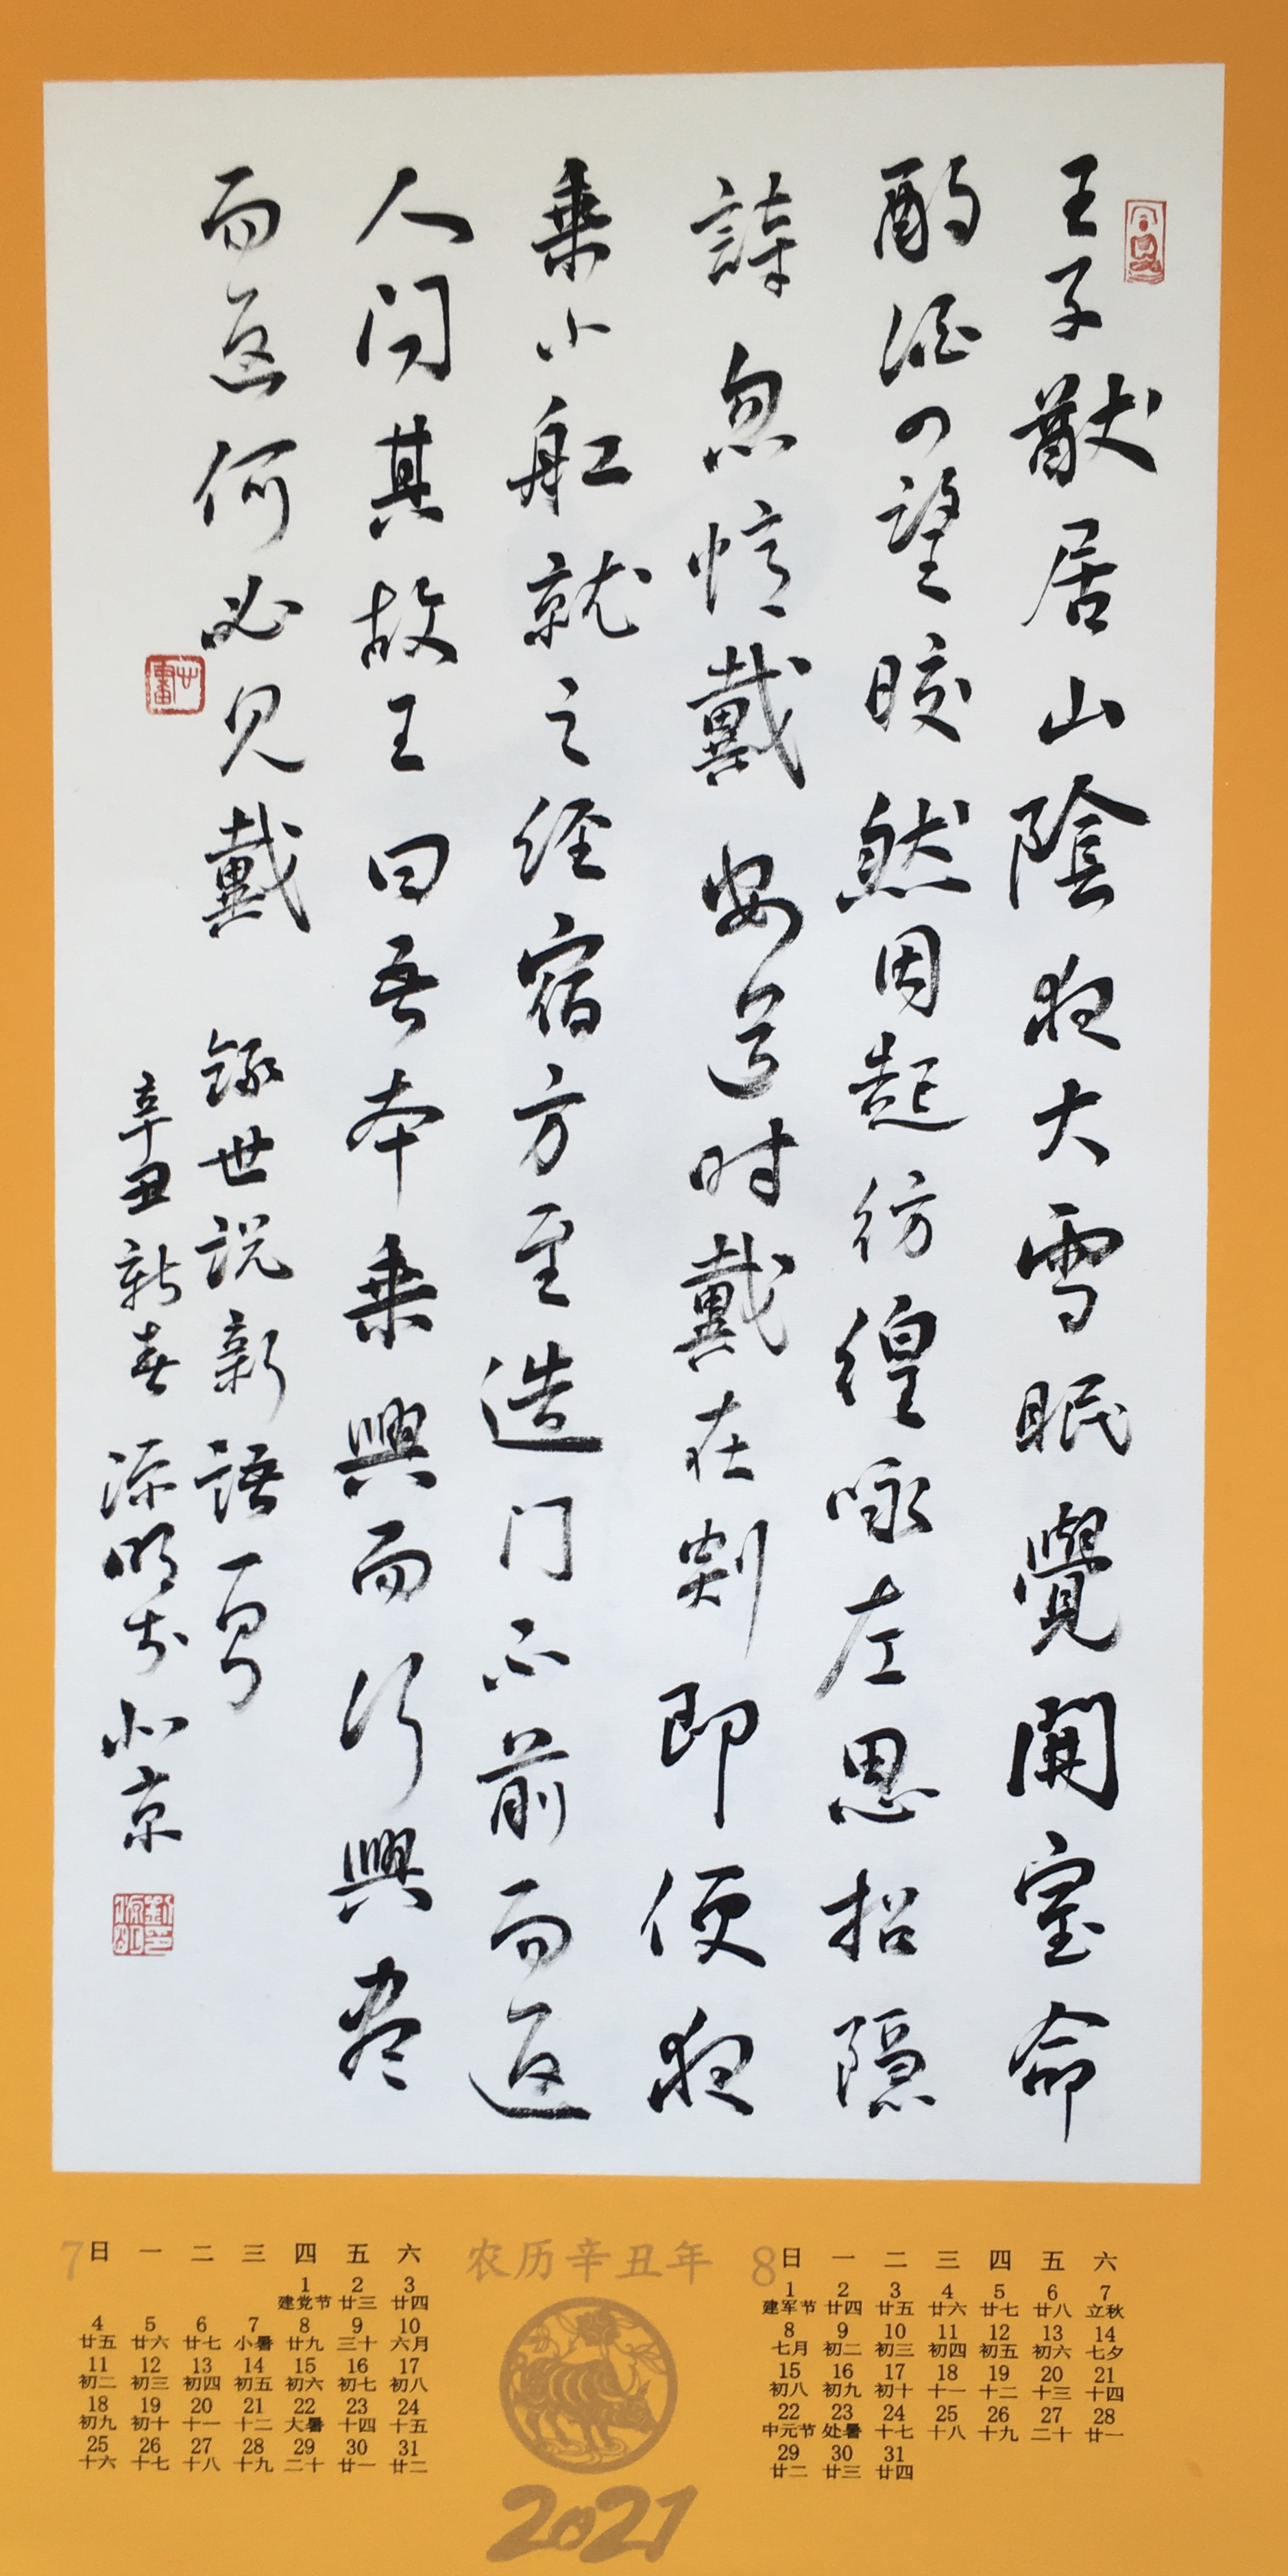 王子猷居山陰夜大雪眠覺開室命
酌酒四望皎然因起彷徨咏左思招隱
詩忽憶戴安道时戴在剡即便夜
乘小船就之经宿方至造门不前而返
人问其故王曰吾本乘興而行興尽
而返何必見戴 録世说新語一則
辛丑新春 源明书 北京
7
日 一 二 三 四 五 六
1 2 3
建党节 廿三 廿四
4 5 6 7 8 9 10
廿五 廿六 廿七 小暑 廿九 三十 六月
11 12 13 14 15 16 17
初二 初三 初四 初五 初六 初七 初八
18 19 20 21 22 23 24
初九 初十 十一 十二 大暑 十四 十五
25 26 27 28 29 30 31
十六 十七 十八 十九 二十 廿一 廿二
农历辛丑年
2021
8
日 一 二 三 四 五 六
1 2 3 4 5 6 7
建军节 廿四 廿五 廿六 廿七 廿八 立秋
8 9 10 11 12 13 14
七月 初二 初三 初四 初五 初六 七夕
15 16 17 18 19 20 21
初八 初九 初十 十一 十二 十三 十四
22 23 24 25 26 27 28
中元节 处暑 十七 十八 十九 二十 廿一
29 30 31
廿二 廿三 廿四